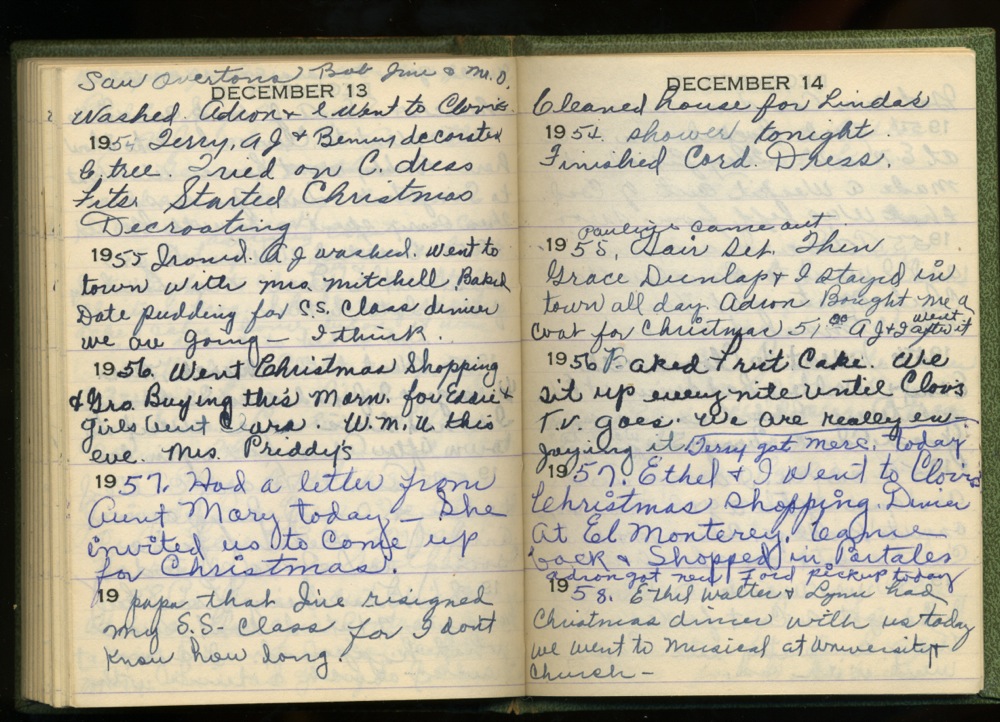 Saw Overtons Bob Jim & Mr. O.
DECEMBER 13
Washed. Adron & I Went to Clovis.
1954 Terry, A J & Benny decorated
C. tree. Tried on C. dress
Started Christmas
Decroating
1955 Ironed. A J washed. Went to
town with mrs. mitchell Baked
Date pudding for S.S. Class dinner
we are going — I think.
1956. Went Christmas Shopping
& Gro. Buying this Morn. for Essie &
girls Aunt Clara. W.M.U this
eve. Mrs. Priddy's
1957. Had a letter from
Aunt Mary today — She
invited us to come up
for Christmas.
19 papa that I've resigned
my S.S- Class for I dont
know how long.
DECEMBER 14
Cleaned house for Linda's
1954. shower tonight.
Finished Cord. Dress.
Pauling's came out.
1955, Hair Set. Then
Grace Dunlap & I stayed in
town all day. Adron Bought me a
coat for Christmas 51.00 A J & I went after it
1956 Baked Fruit Cake. We
sit up every nite until Clovis
T.V. goes. We are really en-
joying it. Terry got merc. today
1957. Ethel & I went to Clovis
Christmas Shopping. Diner
at El Monterey. Came
back & Shopped in Portales
Adron got new Ford pickup today
1958. Ethel Walter & Lynn had
Christmas dinner with us today
we went to musical at University
Church —